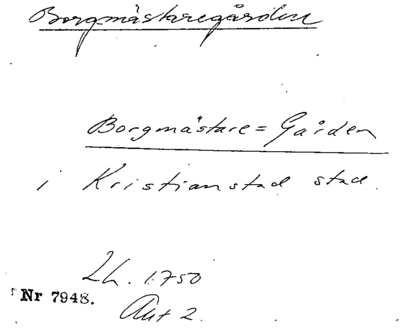 Borgmästaregården
Borgmästare=Gården
i Kristianstad stad.
Lh. 1750
Nr 7948.
Akt 2.